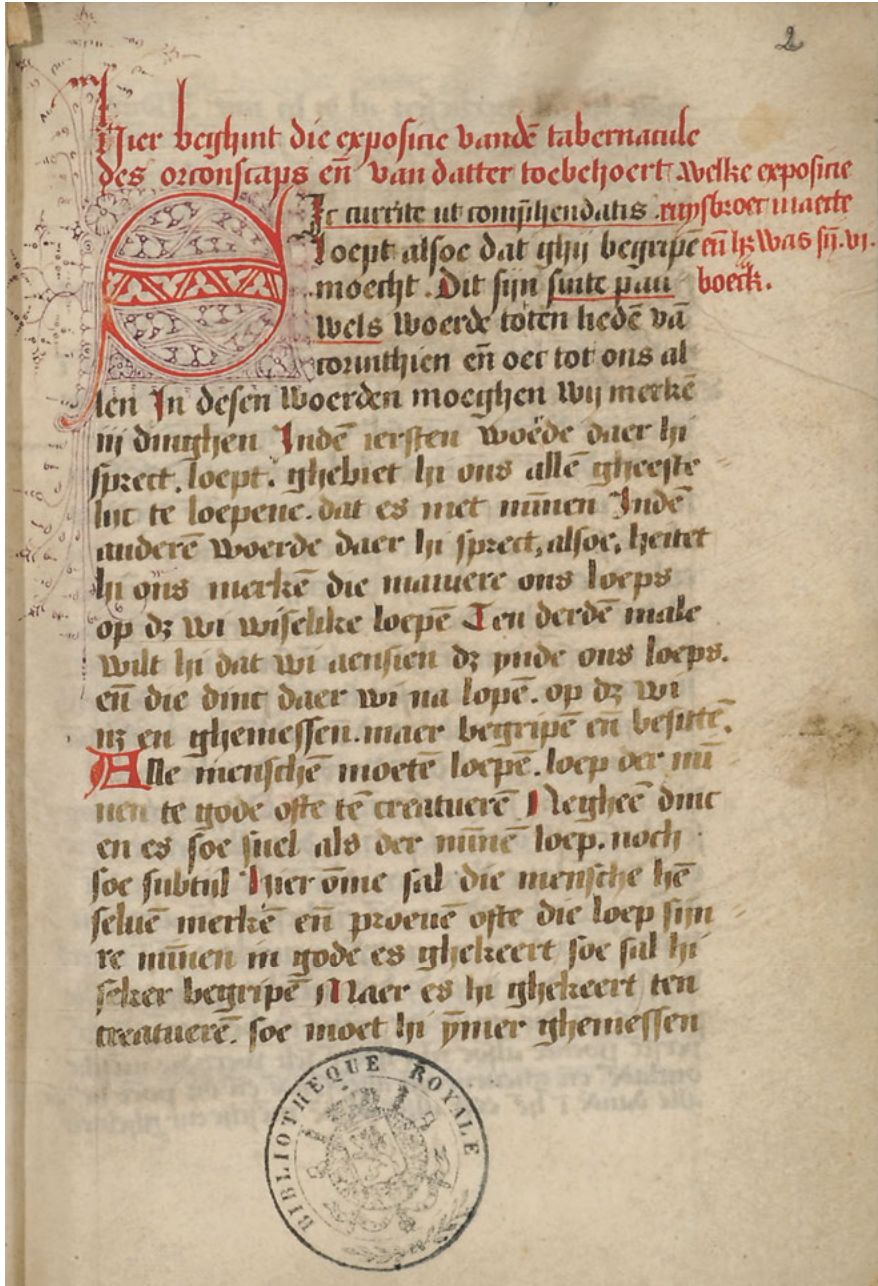 2
Hier beghint die expositie vandē tabernacule
des orconscaps en̄ van datter toebehoert. welke expositie
SIc currite ut comp̄hendatis . ruysbroec maecte
Loept alsoe dat ghij begripē en̄ hz was sij̄. vi.
moecht . Dit sijn sinte pau boeck.
wels woerde toten liedē vā
corinthien en̄ oec tot ons al
len In desen woerden moeghen wij merkē
iij dinghen Indē iersten woēde daer hi
sprect. loept. ghebiet hi ons allē gheeste
lijc te loepene. dat es met mīnen Indē
anderē woerde daer hi sprect, alsoe, heitet
hi ons merkē die maniere ons loeps
op dz wi wiselike loepē Ten derdē male
wilt hi dat wi aensien dz ynde ons loeps.
en̄ die dinc daer wi na lopē. op dz wi
nz en ghemessen. maer begripē en̄ besittē.
Alle menschē moetē loepē. loep der mī
nen te gode ofte tē creatuerē Negheē dinc
en es soe snel als der mīnē loep. noch
soe subtijl Hier ōme sal die mensche hē
seluē merkē en̄ proeuē ofte die loep sijn
re mīnen in gode es ghekeert soe sal hi
seker begripē Maer es hi ghekeert ten
creatuerē. soe moet hi ȳmer ghemessen
BIBLIOTHEQUE ROYALE